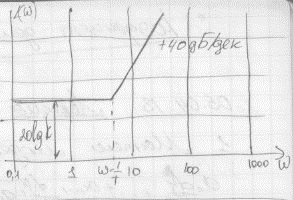 L(ω)
+40дБ/дек
20lgk
0,1
1
ω=1/T
10
100
1000
ω